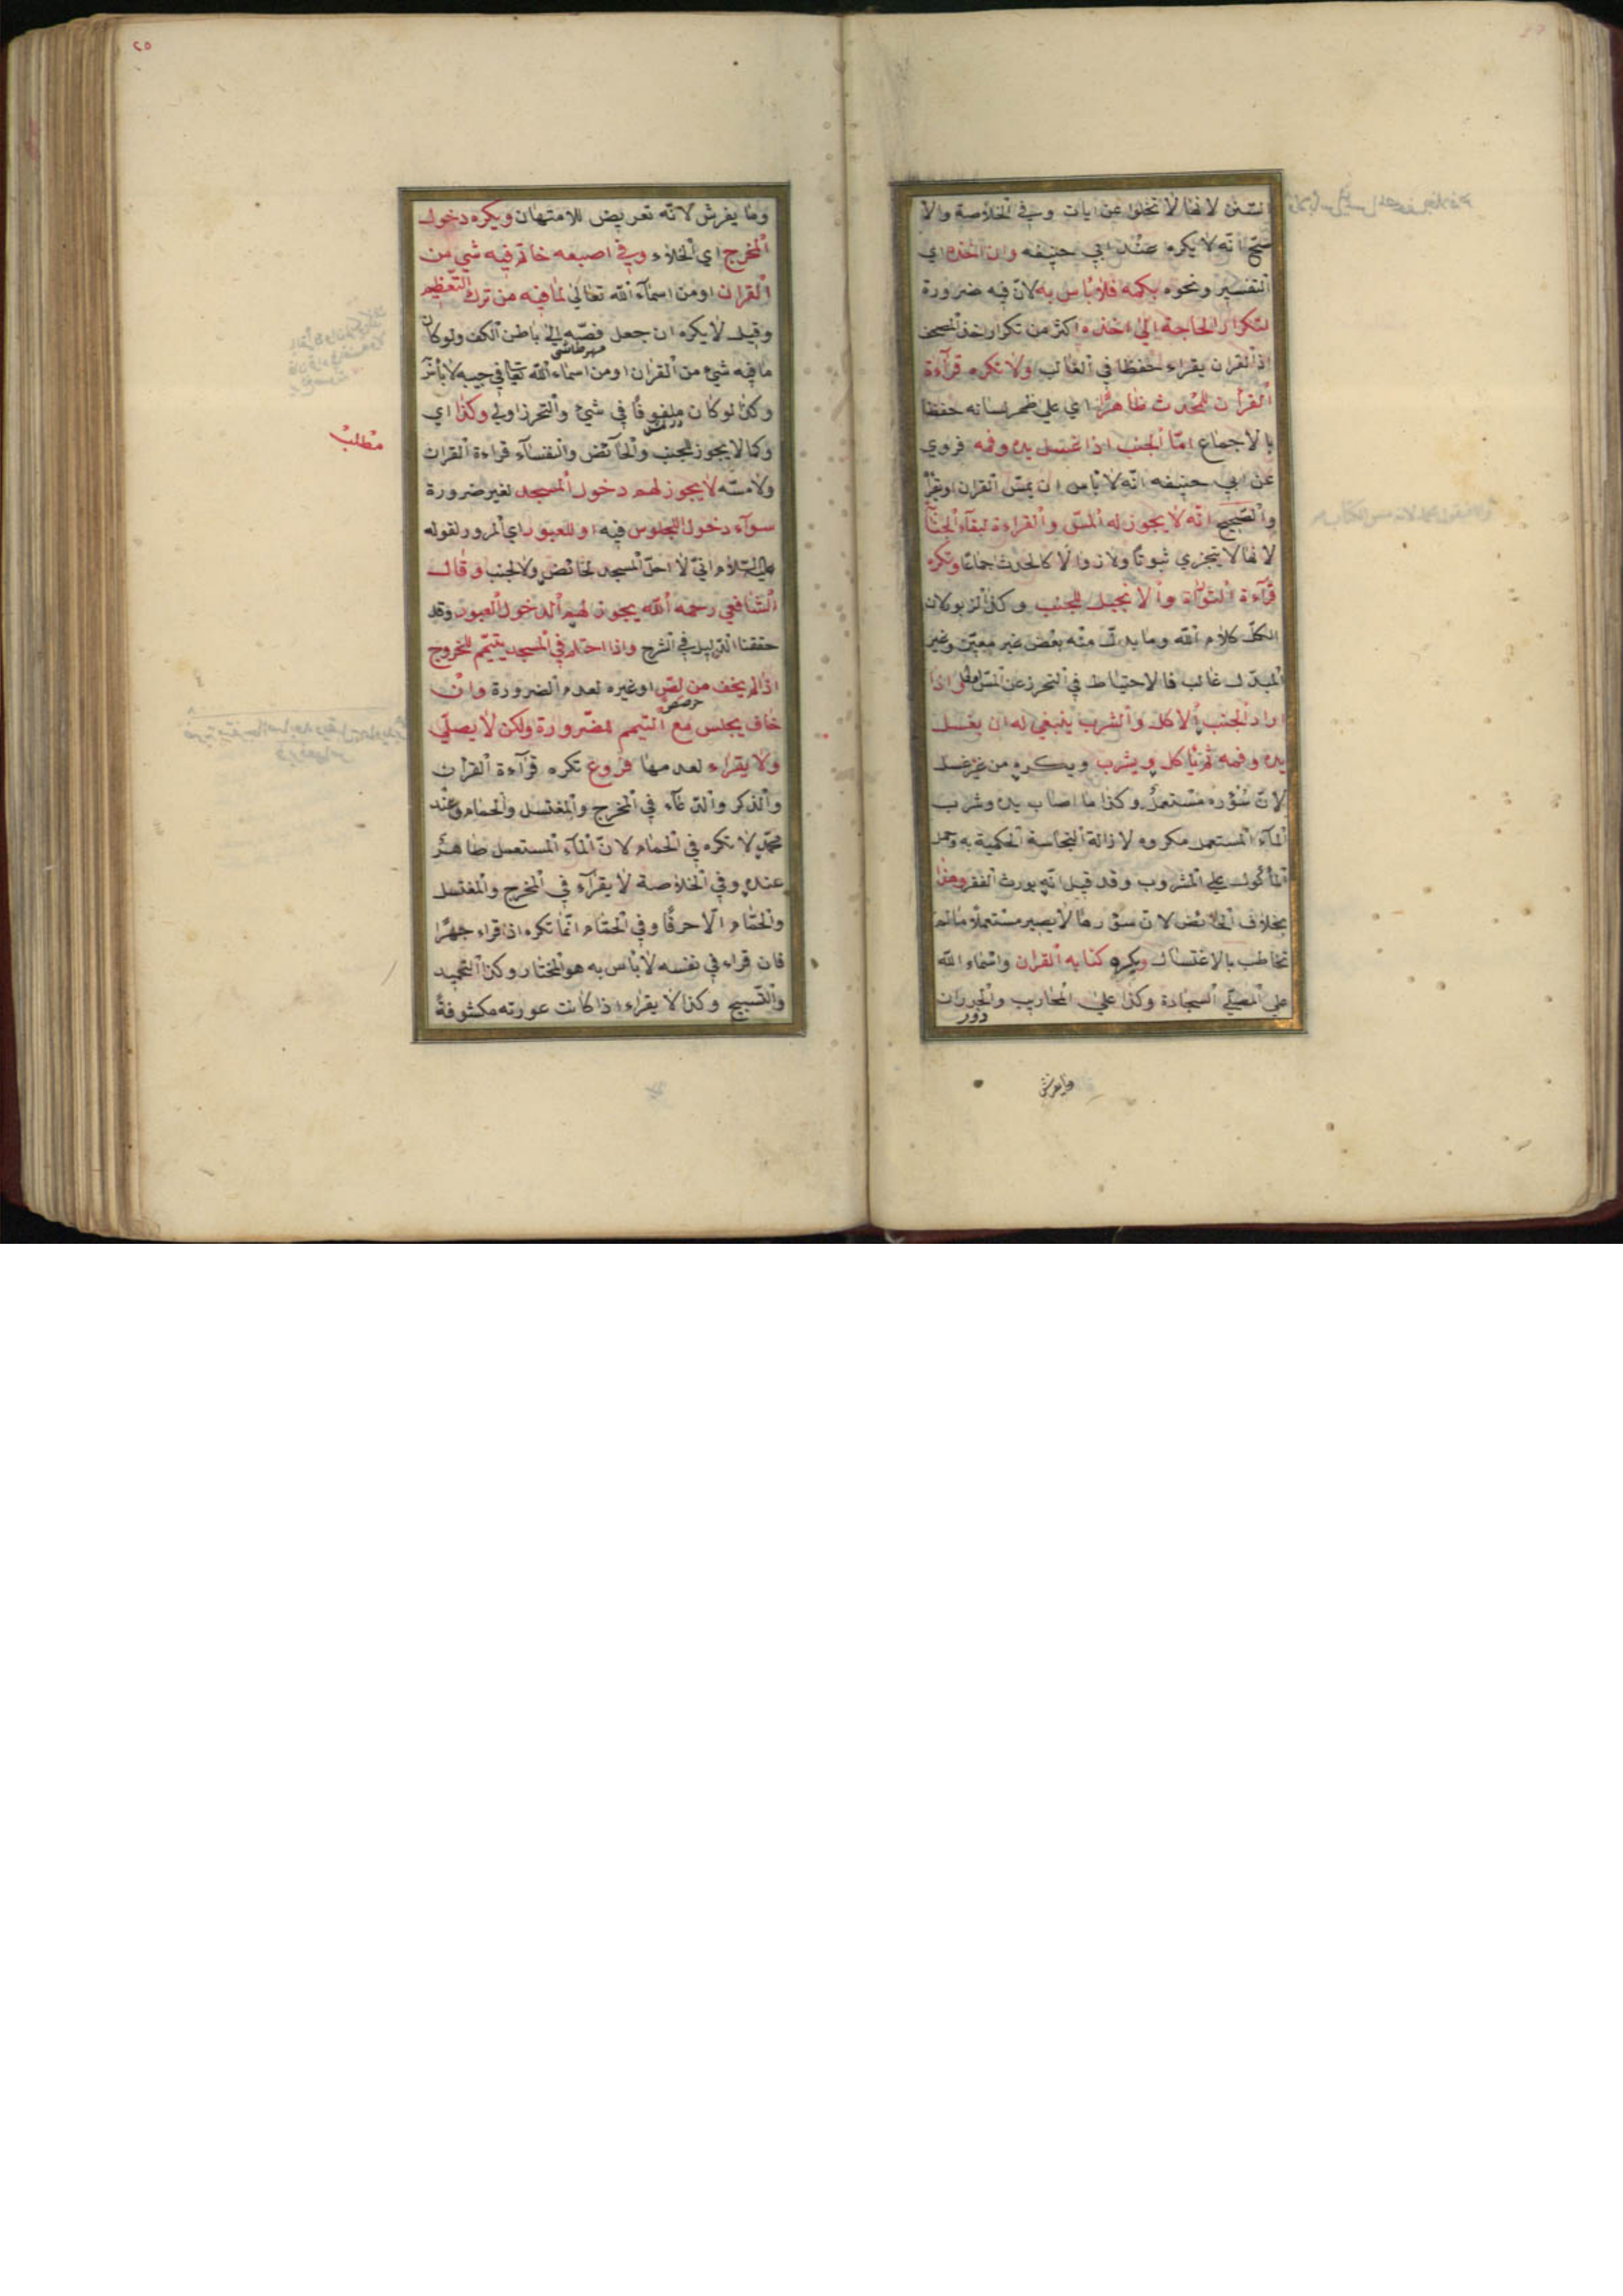 السنن لانها لا تخلوا عن ايات وفي الخلاصة والا
صح انه لا يكره عند ابي حنيفه وان اخذه اي
التفسير ونحوه بكمه فلا بأس به لان فيه ضرورة
لتكرار الحاجة الى اخذه اكثر من تكرار اخذ المصحف
اذ القران يقراء حفظا في الغالب ولا تكره قرآءة
القرأن للمحدث ظاهرًا اي على ظهر لسانه حفظا
بالاجماع امّا الجنب اذا غسل يده وفمه فروي
عن ابي حنيفه انه لا بأس ان يمسّ القران او يقرأ
والصحيح انه لا يجوز له المسّ والقراءة لبقآء الجنابة
لانها لا يتجزي ثبوتًا ولا زوالًا كالحدث جماعًا وتكره
قرآءة التوراة والانجيل للجنب وكذا الزبور لان
الكل كلام الله وما بدل منه بعض غير معيّن وغير
المبدّل غالب فالاحتياط في التحرز عن المسّ اذا
اراد الجنب الاكل والشرب ينبغي له ان يغسل
يده وفمه ثم يأكل ويشرب ويكره من غير غسل
لانّ سُؤره مستعملٌ وكذا ما اصاب يده وشرب
المآء المستعمل مكروه لازالة النجاسة الحكمية به وحمل
المأكول على المشروب وقد قيل انه يورث الفقر وهذا
بخلاف الحائض لان سؤرها لا يصير مستعملًا ما لم
تخاطب بالاغتسال ويكره كتابه القران واسماء الله
على المصلّي السجادة وكذا على المحاريب والجدران
دور
وما يفرش
٢٥
وما يفرش لانه تعريض للامتهان ويكره دخول
المخرج اي الخلاء وفي اصبعه خاتم فيه شئ من
القران او من اسمآء الله تعالى لما فيه من ترك التّعظيم
وقيل لا يكره ان جعل فصّه الى باطن الكف ولو كان
ما فيه شئ من القران او من اسماء الله تعا في جيبه لا بأس
وكذا لو كان ملفوفًا في شئ والتحرز اولى وكذا اي
وكما لا يجوز للجنب والحآئض والنفسآء قراءة القران
مطلب
ولا مسّه لا يجوز لهم دخول المسجد لغير ضرورة
سوآء دخول للجلوس فيه او للعبور اي المرور لقوله
عليه السلام انّي لا احلّ المسجد لحائض ولا لجنب وقال
الشافعي رحمه الله يجوز لهم الدخول للعبور وقد
حققنا الدليل في الشرح واذا احتلم في المسجد يتيمّم للخروج
اذا لم يخف من لصّ او غيره لعدم الضرورة وان
خاف يجلس مع التيمم للضرورة ولكن لا يصلّي
ولا يقراء لعدمها فروع تكره قرآءة القرأن
والذكر والدعآء في المخرج والمغتسل والحمام وعند
محمّد لا تكره في الحمام لانّ المآء المستعمل طاهرٌ
عنده وفي الخلاصة لا يقرآء في المخرج والمغتسل
والحمّام الّا حرفًا وفي الحمّام انّما تكره اذا قراء جهرًا
فان قراء في نفسه لا بأس به هو المختار وكذا التحميد
والتّسبيح وكذا لا يقراء اذا كانت عورته مكشوفةً